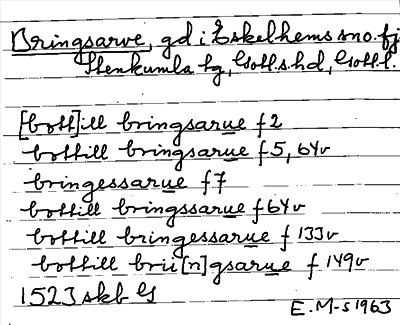 Bringsarve, gd i Eskelhems sno. fj
Stenkumla tg, Gotl. s. hd, Gotl. l.
[bott]ill bringsarue f 2
bottill bringsarue f 5, 64v
bringessarue f 7
bottill bringssarue f 64v
bottill bringessarue f 133v
bottill brii[n]gsarue f 149v
1523 skb G
E. M-s 1963